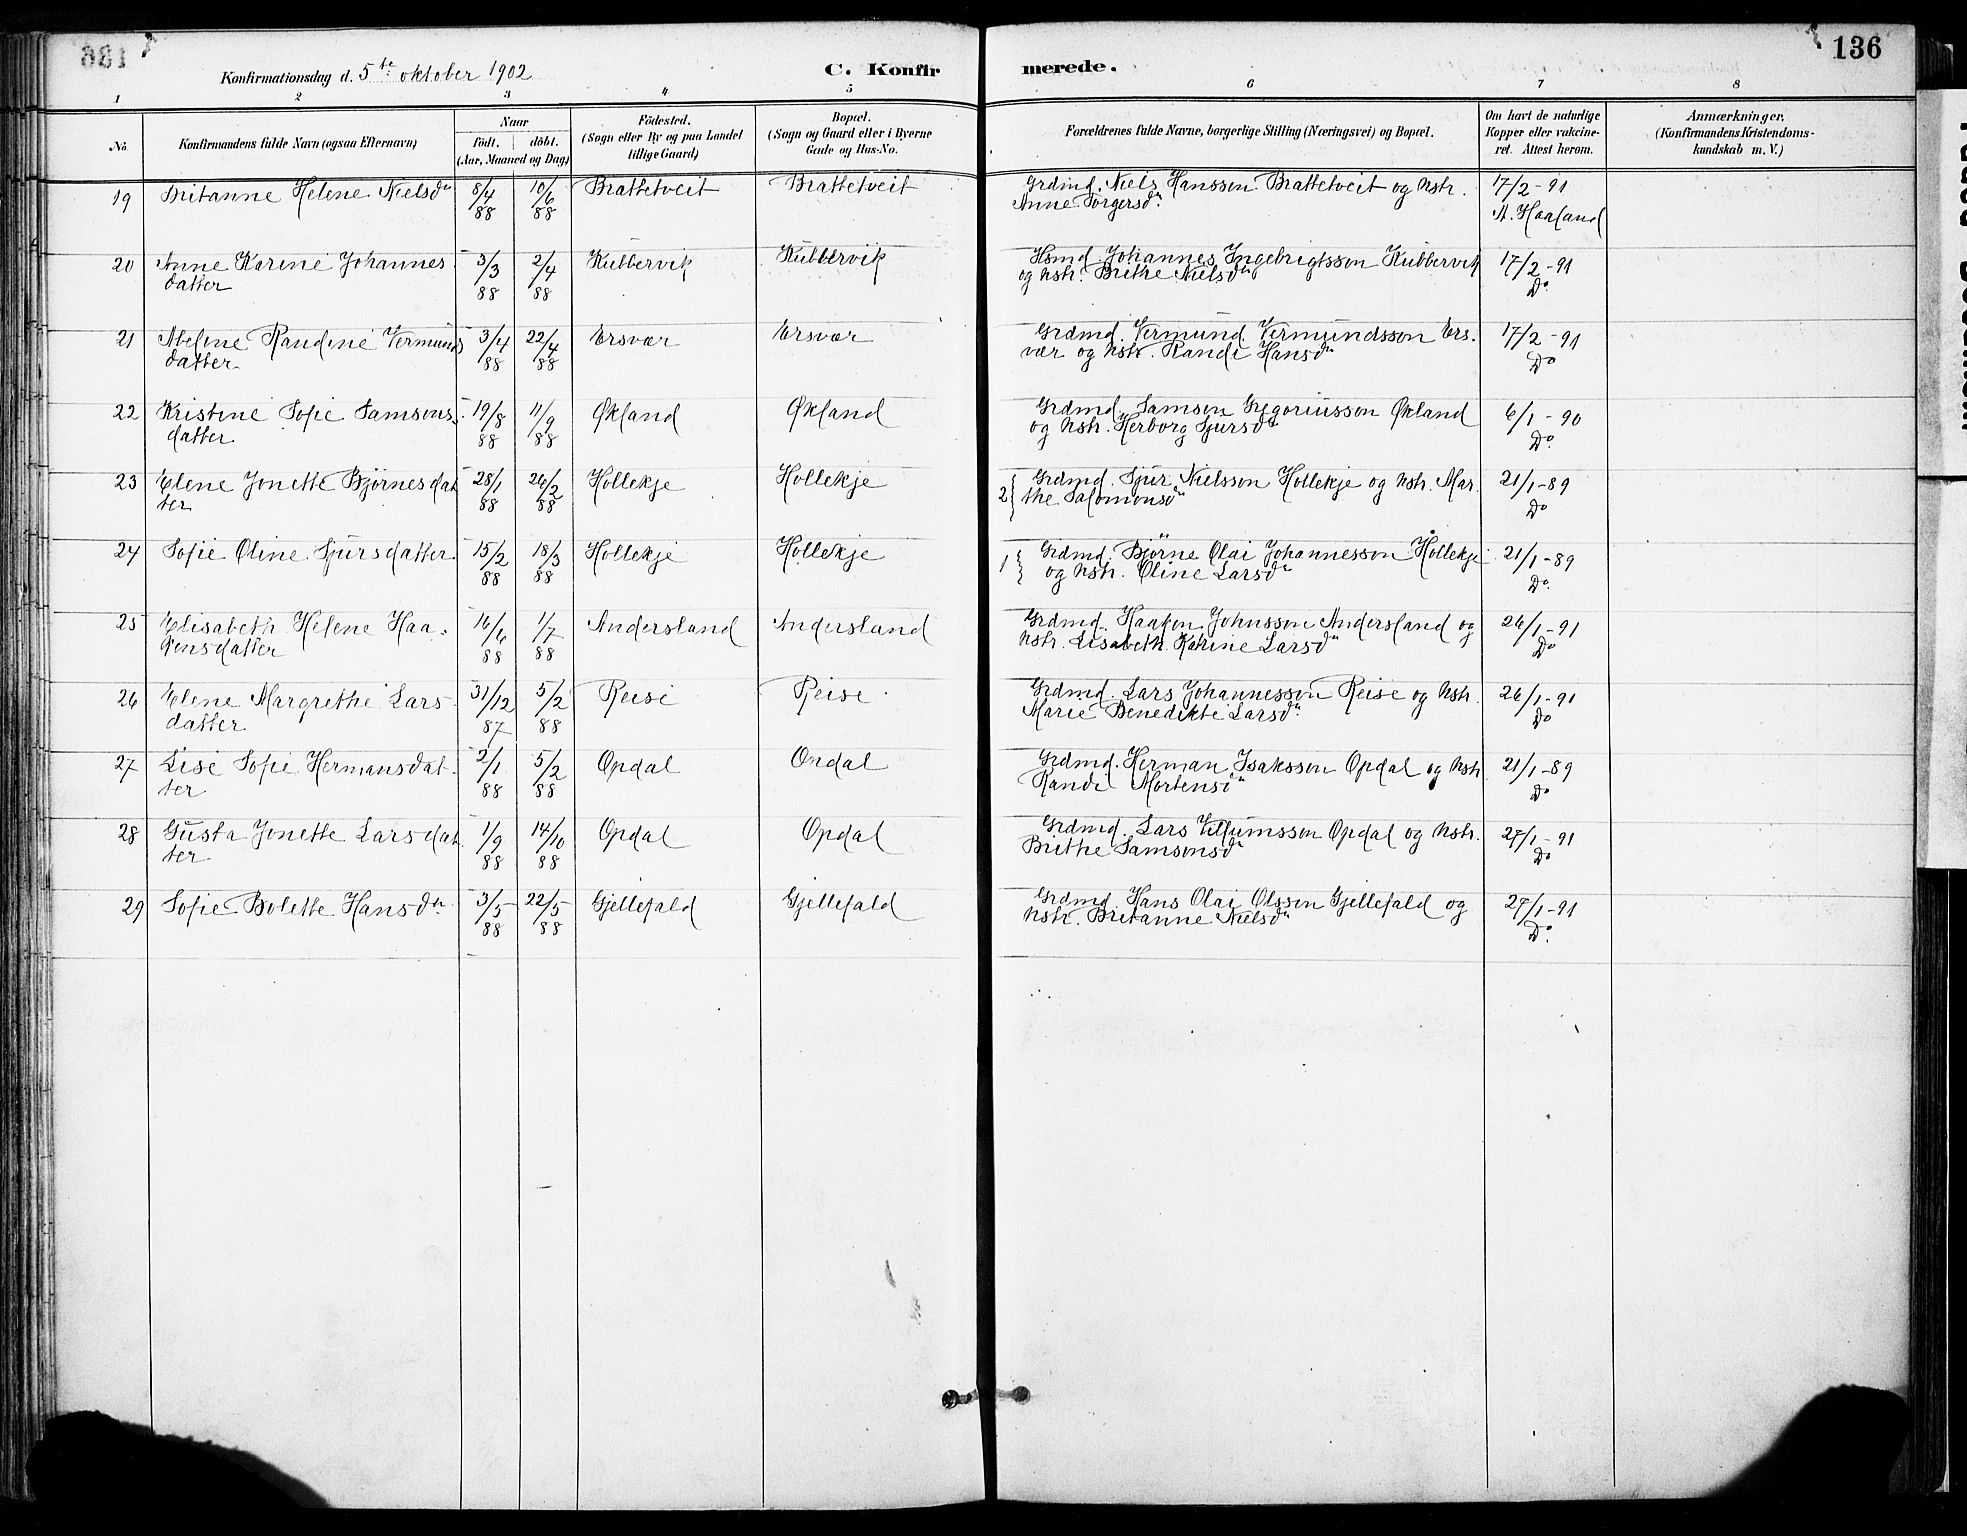 136
Konfirmationsdag d. 5te oktober 1902
C. Konfirmerede.
1 2 3 4 5 6 7 8
No.
Konfirmandens fulde Navn (ogsaa Efternavn)
Naar
födt. döbt.
(Aar, Maaned og Dag)
Födested.
(Sogn eller By og paa Landet
tillige Gaard)
Bopæl.
(Sogn og Gaard eller i Byerne
Gade og Hus-No.
Forældrenes fulde Navne, borgerlige Stilling (Næringsvei) og Bopæl.
Om havt de naturlige
Kopper eller vakcine-
ret. Attest herom.
Anmærkninger.
(Konfirmandens Kristendoms-
kundskab m. V.)
19 Britanne Helene Nielsdtr 8/4 88 10/6 88 Brattetveit Brattetveit Grdmd. Niels Hanssen Brattetveit og Kstr. 17/2-91
Anne Torgersdtr A. Haaland
20 Anne Karine Johannes 3/3 88 2/4 88 Kubbervik Kubbervik Hsmd. Johannes Ingebrigtsson Kubbervik 17/2-91
datter og Kstr. Brithe Nielsdtr Do
21 Abeline Randine Vermunds 3/4 88 22/4 88 Ersvær Ersvær Grdmd. Vermund Vermundsson Ers- 17/2-91
datter vær og Kstr. Randi Hansdtr Do
22 Kristine Sofie Samsons- 19/8 88 11/9 88 Økland Økland Grdmd. Samson Gregoriusson Økland 6/1-90
datter og Kstr. Herborg Sjursdtr Do
23 Elene Jonette Bjørnesdat 28/1 88 26/2 88 Hollekje Hollekje 2{ Grdmd. Sjur Nielsson Hollekje og Kstr. Mar- 21/1-89
ter the Salomonsdtr Do
24 Sofie Oline Sjursdatter 15/2 88 18/3 88 Hollekje Hollekje 1{ Grdmd. Bjørne Olai Johannesson Hollekje 21/1-89
og Kstr. Oline Larsdtr Do
25 Elisabeth Helene Haa- 16/6 88 1/7 88 Andersland Andersland Grdmd. Haakon Johnsson Andersland og 26/1-91
konsdatter Kstr. Lisabeth Katrine Larsdtr Do
26 Elene Margrethe Lars- 31/12 87 5/2 88 Reise Reise Grdmd. Lars Johannesson Reise og Kstr. 26/1-91
datter Marie Benedikte Larsdtr Do
27 Lise Sofie Hermansdat- 2/1 88 5/2 88 Opdal Opdal Grdmd. Herman Isaksson Opdal og Kstr 21/1-89
ter Randi Mortensdtr Do
28 Gusta Jonette Larsdat 1/9 88 14/10 88 Opdal Opdal Grdmd. Lars Villumsson Opdal og Kstr. 27/1-91
ter Brithe Samsonsdtr Do
29 Sofie Bolette Hansdtr 3/5 88 22/5 88 Gjellefald Gjellefald Grdmd. Hans Olai Olsson Gjellefald og 27/1-91
Kstr. Britanne Nielsdtr Do